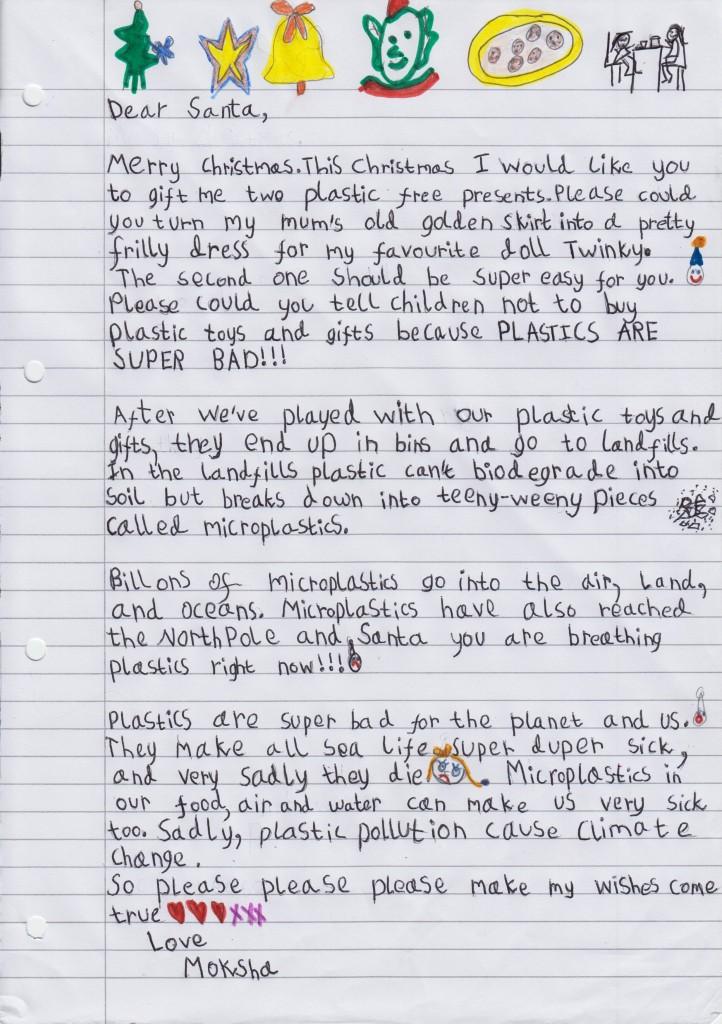 Dear Santa,
Merry Christmas. This Christmas I would like you
to gift me two plastic free presents. Please could
you turn my mum's old golden skirt into a pretty
frilly dress for my favourite doll Twinky.
The second one should be super easy for you.
Please could you tell children not to buy
plastic toys and gifts because PLASTICS ARE
SUPER BAD!!!
After we've played with our plastic toys and
gifts, they end up in bins and go to landfills.
In the landfills plastic can't biodegrade into
soil but breaks down into teeny-weeny pieces
called microplastics.
Billons of microplastics go into the air, land,
and oceans. Microplastics have also reached
the North Pole and, Santa you are breathing
plastics right now!!!
Plastics are super bad for the planet and us.
They make all sea life super duper sick,
and very sadly they die. Microplastics in
our food, air and water can make us very sick
too. Sadly, plastic pollution cause climate
change.
So please please please make my wishes come
true xxx
Love
Moksha